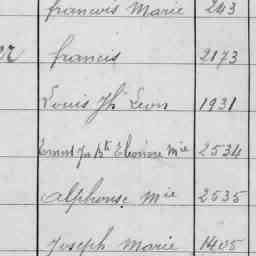 francois Marie 243
er francis 2173
Louis Jh Leon 1931
Ernest Jn Bte Eleonore Mie 2534
Alphonse Mie 2535
Joseph Marie 1405